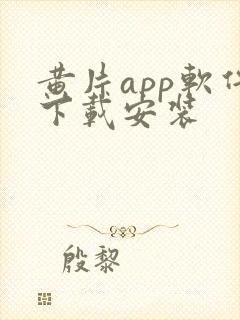 黄片app軟件
下載安装
殷黎